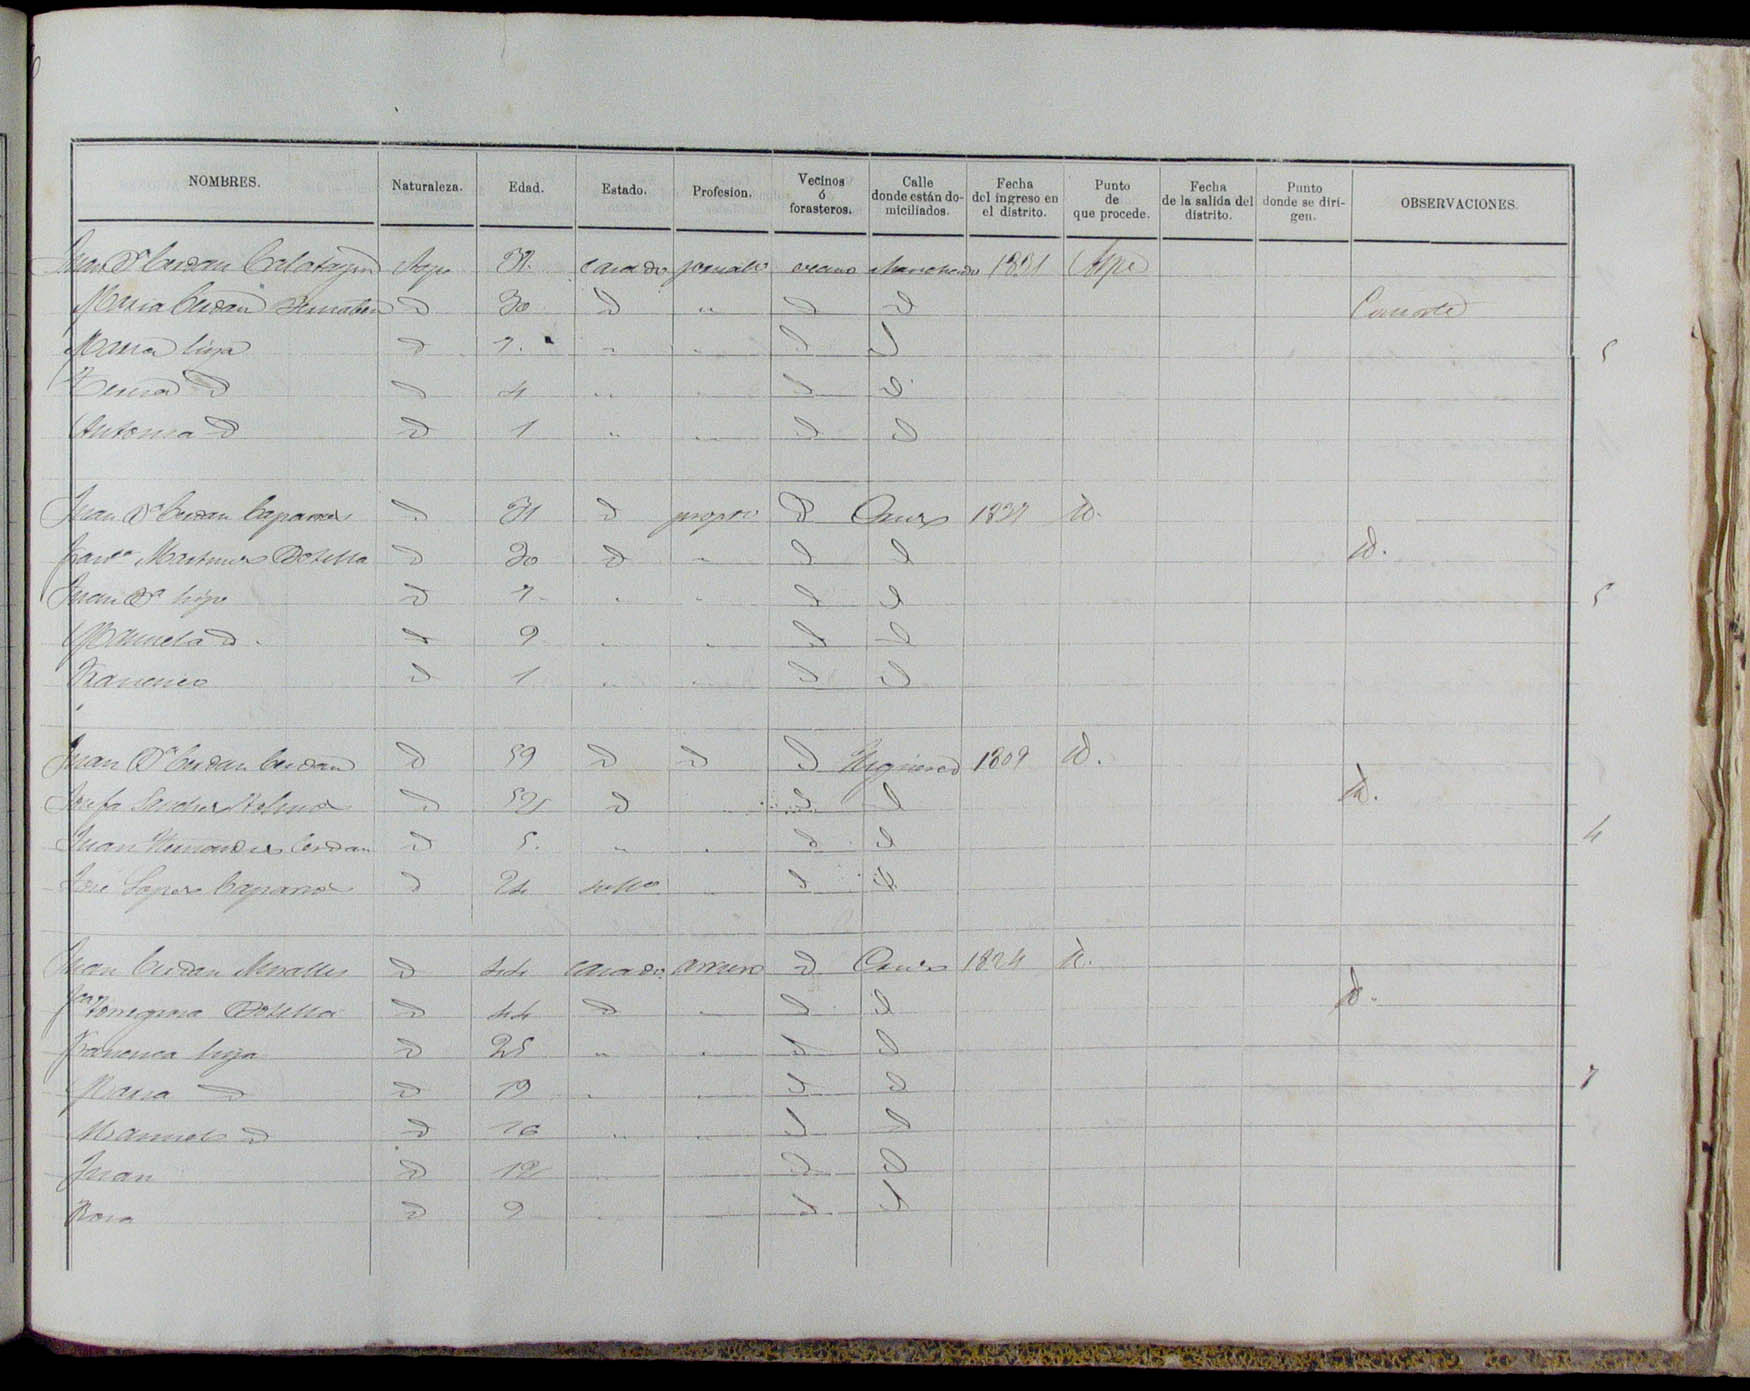 NOMBRES. Naturaleza. Edad. Estado. Profesion. Vecinos ó forasteros. Calle donde están domiciliados. Fecha del ingreso en el distrito. Punto de que procede. Fecha de la salida del distrito. Punto donde se dirigen. OBSERVACIONES.
Juan Bta Cerdan Calatayud Aspe casado vecino 1831 Aspe
Maria Cerdan d 30 d " d d Consorte
Maria hija d 7 " " d d
Teresa d d 4 " " d d
Antonia d d 1 " " d d
5
Juan Bta Cerdan Caparros d 31 d propio d 1837 id.
Franca Martinez Botella d 30 d " d d id.
Juan Bta hijo d 7 " " d d
Manuela d. d 9 " " d d
Francisco d 1 " " d d
5
Juan Bta Cerdan Cerdan d 59 d d d 1809 id.
Josefa Sanchez d d " d d id.
Juan Hernandez Cerdan d 5. " " d d
Jose Lopez Caparros d 24 " d d
4
Juan Cerdan Miralles d 44 casado arriero d 1824 id.
Torregrosa Botella d 44 d " d d id.
Francisca hija d 25 " " d d
Maria d d 19 " " d d
Manuel d d 16 " " d d
Juan d 12 " " d d
Rosa d 9 " " d d
7